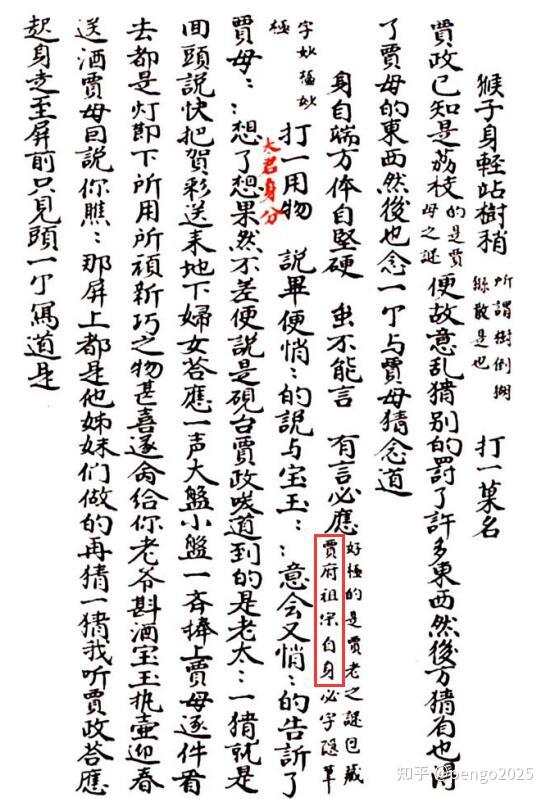 猴子身輕站樹稍 所謂樹倒猢
猻散是也 打一菓名
賈政已知是荔枝 的是賈
母之謎 便故意乱猜别的罰了許多東西然後方猜有也得
了賈母的東西然後也念一个与賈母猜念道
身自端方体自堅硬 虽不能言 有言必應 好極的是賈老之謎包藏
賈府祖宗自身必字隐筆
字妙極妙
極
打一用物 說畢便悄:的說与宝玉::意会又悄:的告訴了
太君身分
賈母::想了想果然不差便說是硯台賈政咲道到的是老太:一猜就是
囬頭說快把賀彩送来地下婦女荅應一声大盤小盤一斉捧上賈母逐件看
去都是灯節下所用所頑新巧之物甚喜遂命给你老爷斟酒宝玉执壶迎春
送酒賈母因說你瞧:那屏上都是他姊妹们做的再猜一猜我听賈政荅應
起身走至屏前只見頭一个寫道是
知乎 @pengo2025